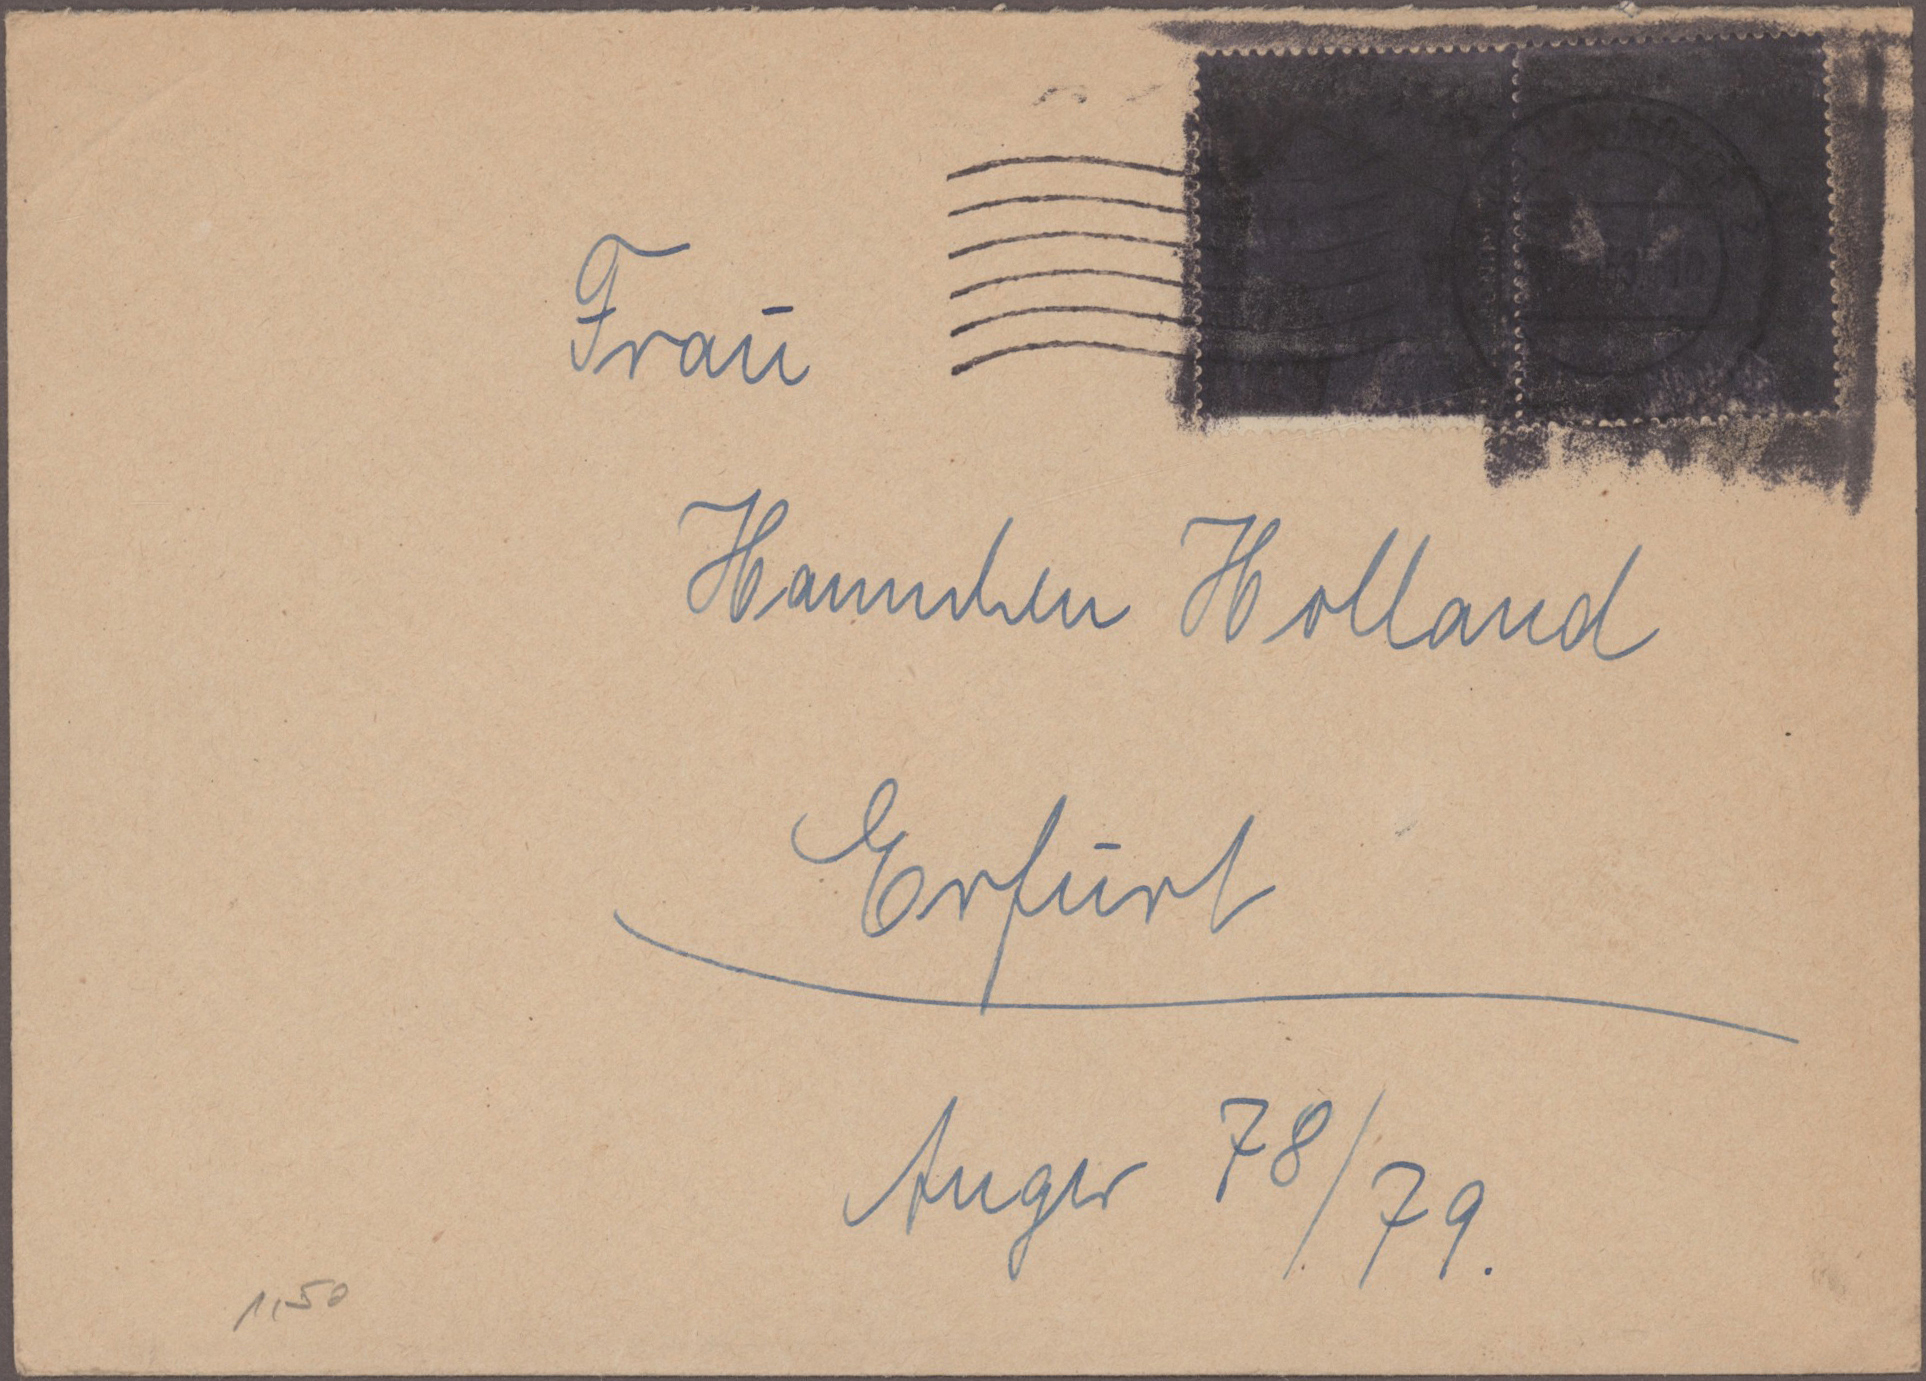 Frau
Hannchen Holland
Erfurt
Anger 78/79.
1,50